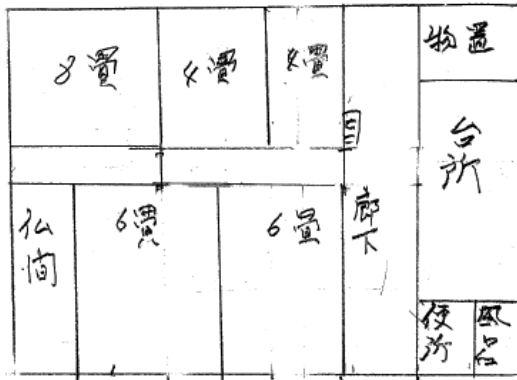 8畳
4畳
4畳
物置
台所
仏間
6畳
6畳
廊下
便所
風呂